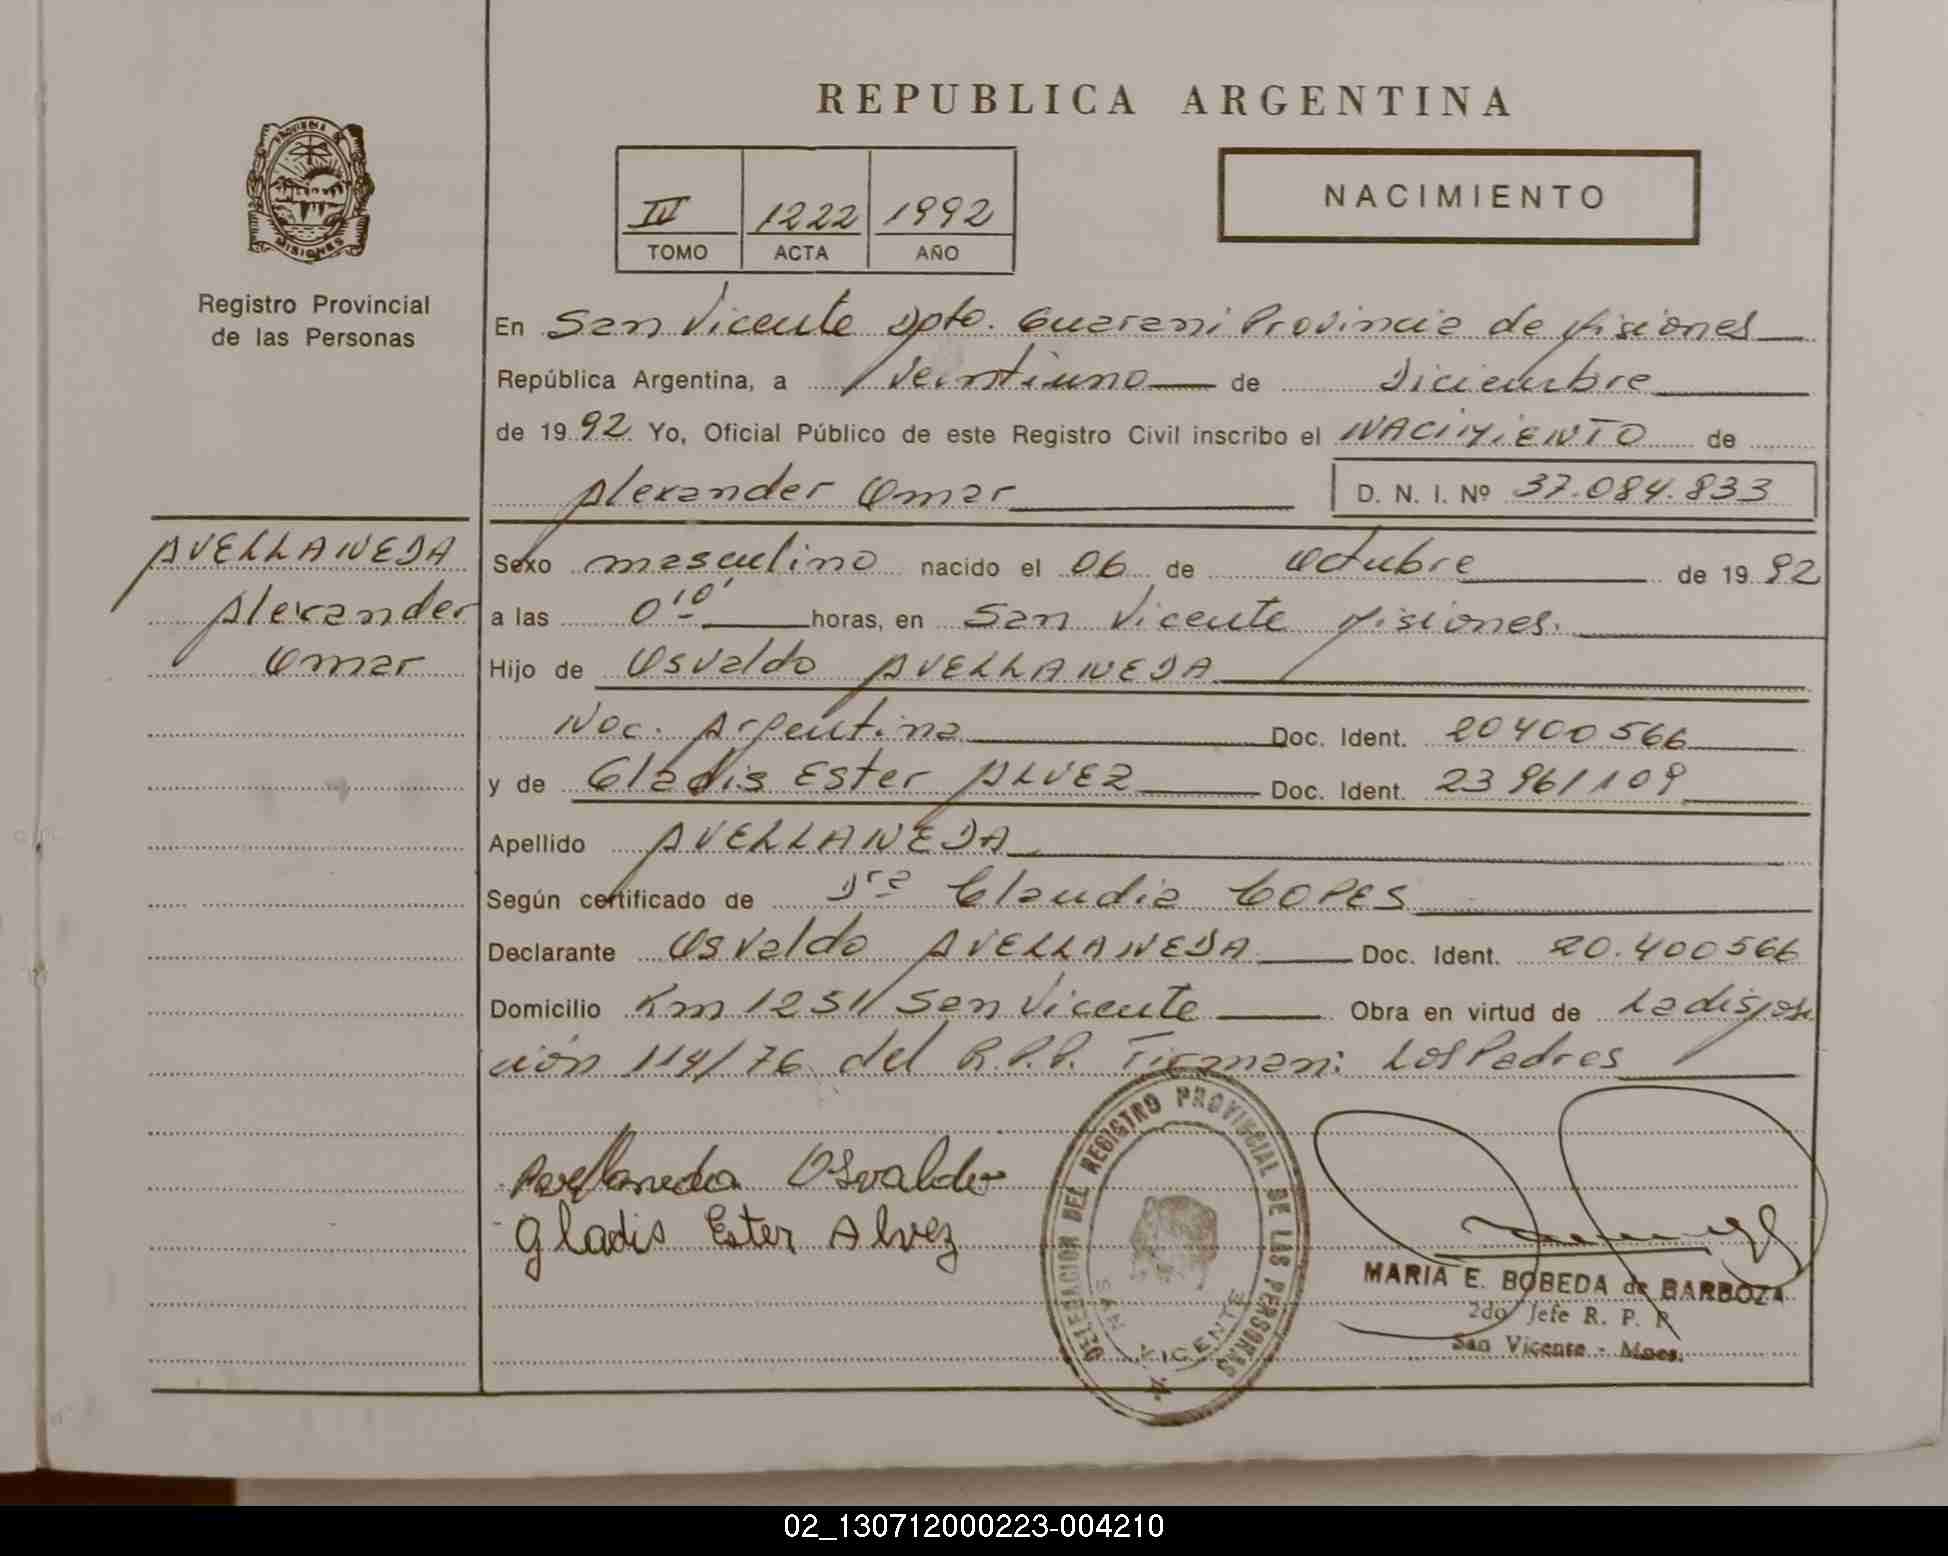 REPUBLICA ARGENTINA
PROVINCIA DE
MISIONES
Registro Provincial
de las Personas
III 1222 1992
TOMO ACTA AÑO
NACIMIENTO
En San Vicente Dpto. Guarani Provincia de Misiones
República Argentina, a Veintiuno de Diciembre
de 1992 Yo, Oficial Público de este Registro Civil inscribo el NACIMIENTO de
Alexander Omar D. N. I. Nº 37.084.833
AVELLANEDA
Alexander
Omar
Sexo masculino nacido el 06 de Octubre de 1992
a las 0 10' horas, en San Vicente Misiones.
Hijo de Osvaldo AVELLANEDA
Nac. Argentina Doc. Ident. 20400566
y de Gladis Ester ALVEZ Doc. Ident. 23961109
Apellido AVELLANEDA
Según certificado de Dra Claudia COPES
Declarante Osvaldo AVELLANEDA Doc. Ident. 20.400566
Domicilio Km 1251 San Vicente Obra en virtud de La disposi
ción 114/76 del R.P.P. Firman: Los Padres
Avellaneda Osvaldo
Gladis Ester Alvez
DELEGACION DEL REGISTRO PROVINCIAL DE LAS PERSONAS
SAN VICENTE
MARIA E. BOBEDA de BARBOZA
2do Jefe R. P. P.
San Vicente - Mnes.
02_130712000223-004210